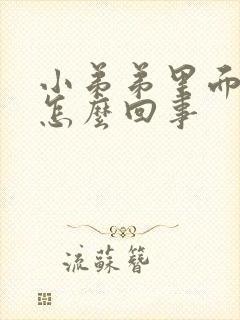 小弟弟里而
怎麼回事
流蘇簪